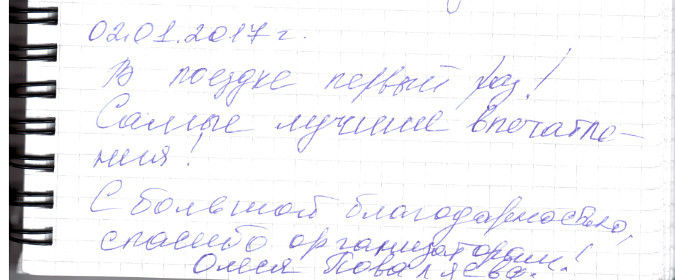 02.01.2017 г.
В поездке первый раз!
Самые лучшие впечатле-
ния!
С большой благодарностью,
спасибо организаторам!
Олеся Поваляева.